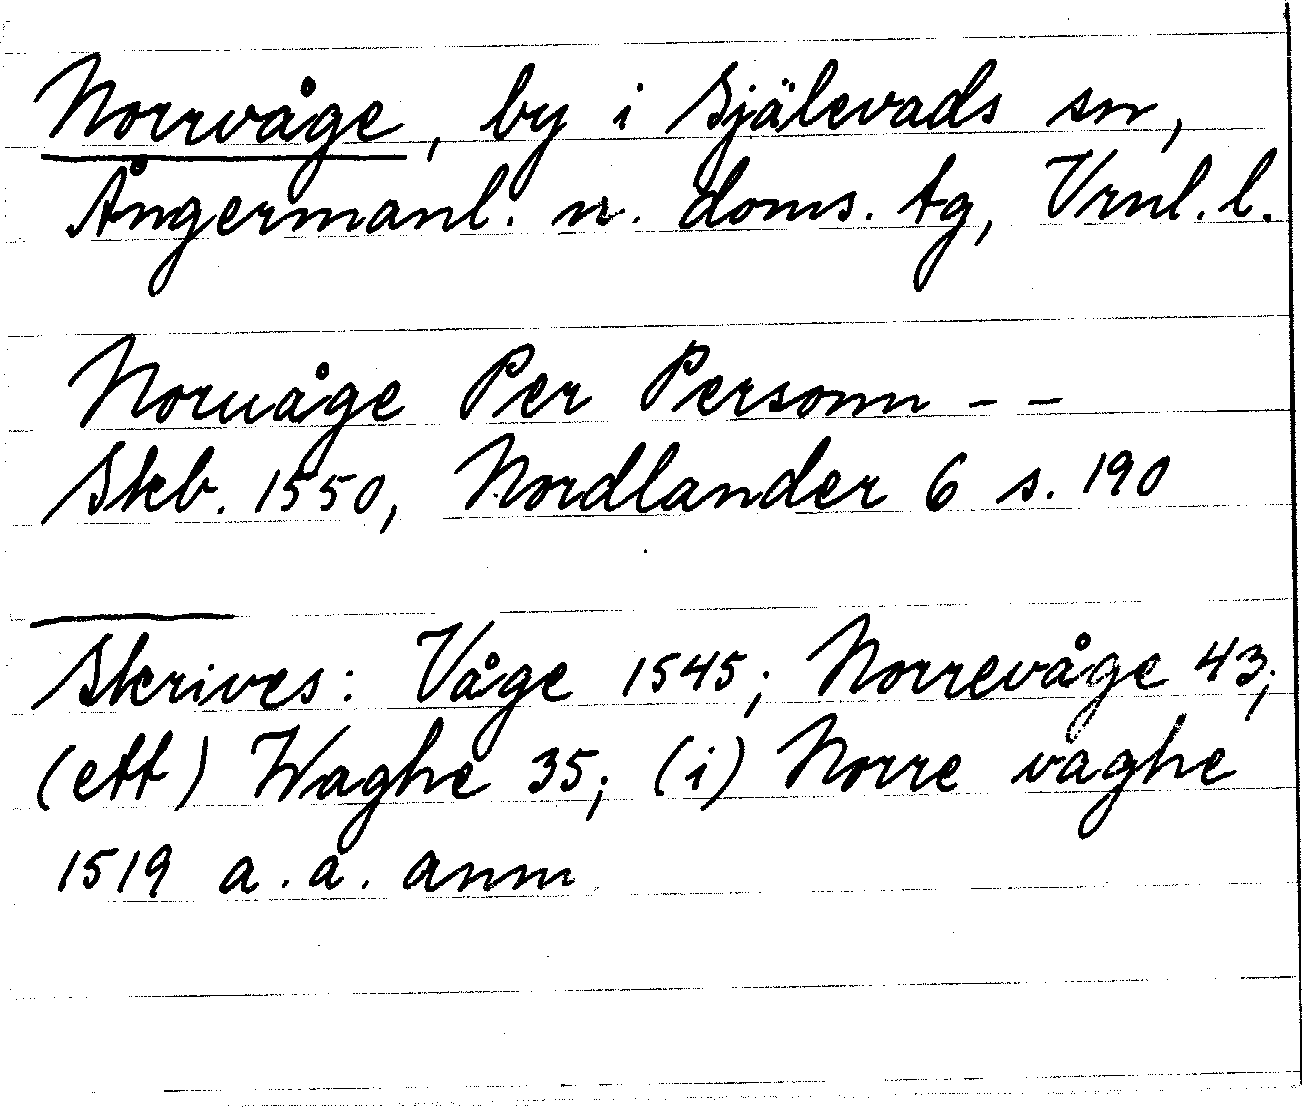 Norrvåge, by i Själevads sn,
Ångermanl. n. doms. tg, Vrnl. l.
Noruåge Per Personn - -
Skb. 1550, Nordlander 6 s. 190
Skrives: Våge 1545; Norrevåge 43;
(ett) Waghe 35; (i) Norre vaghe
1519 a. a. anm